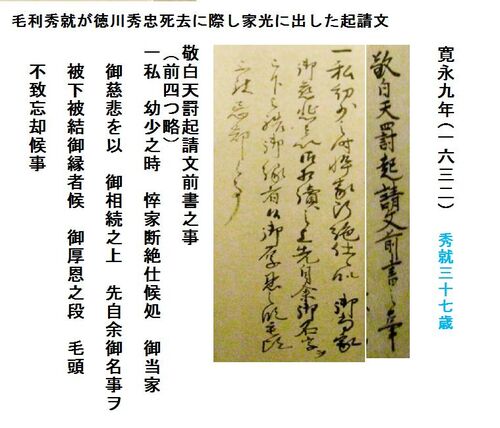 毛利秀就が徳川秀忠死去に際し家光に出した起請文
寛永九年(一六三二) 秀就三十七歳
敬白天罰起請文前書之事
一私幼少之時悴家断絶仕候処 御当家
御慈悲を以
敬白天罰起請文前書之事
(前四つ略)
一私 幼少之時 悴家断絶仕候処 御当家
御慈悲を以 御相続之上 先自余御名事ヲ
被下被結御縁者候 御厚恩之段 毛頭
不致忘却候事